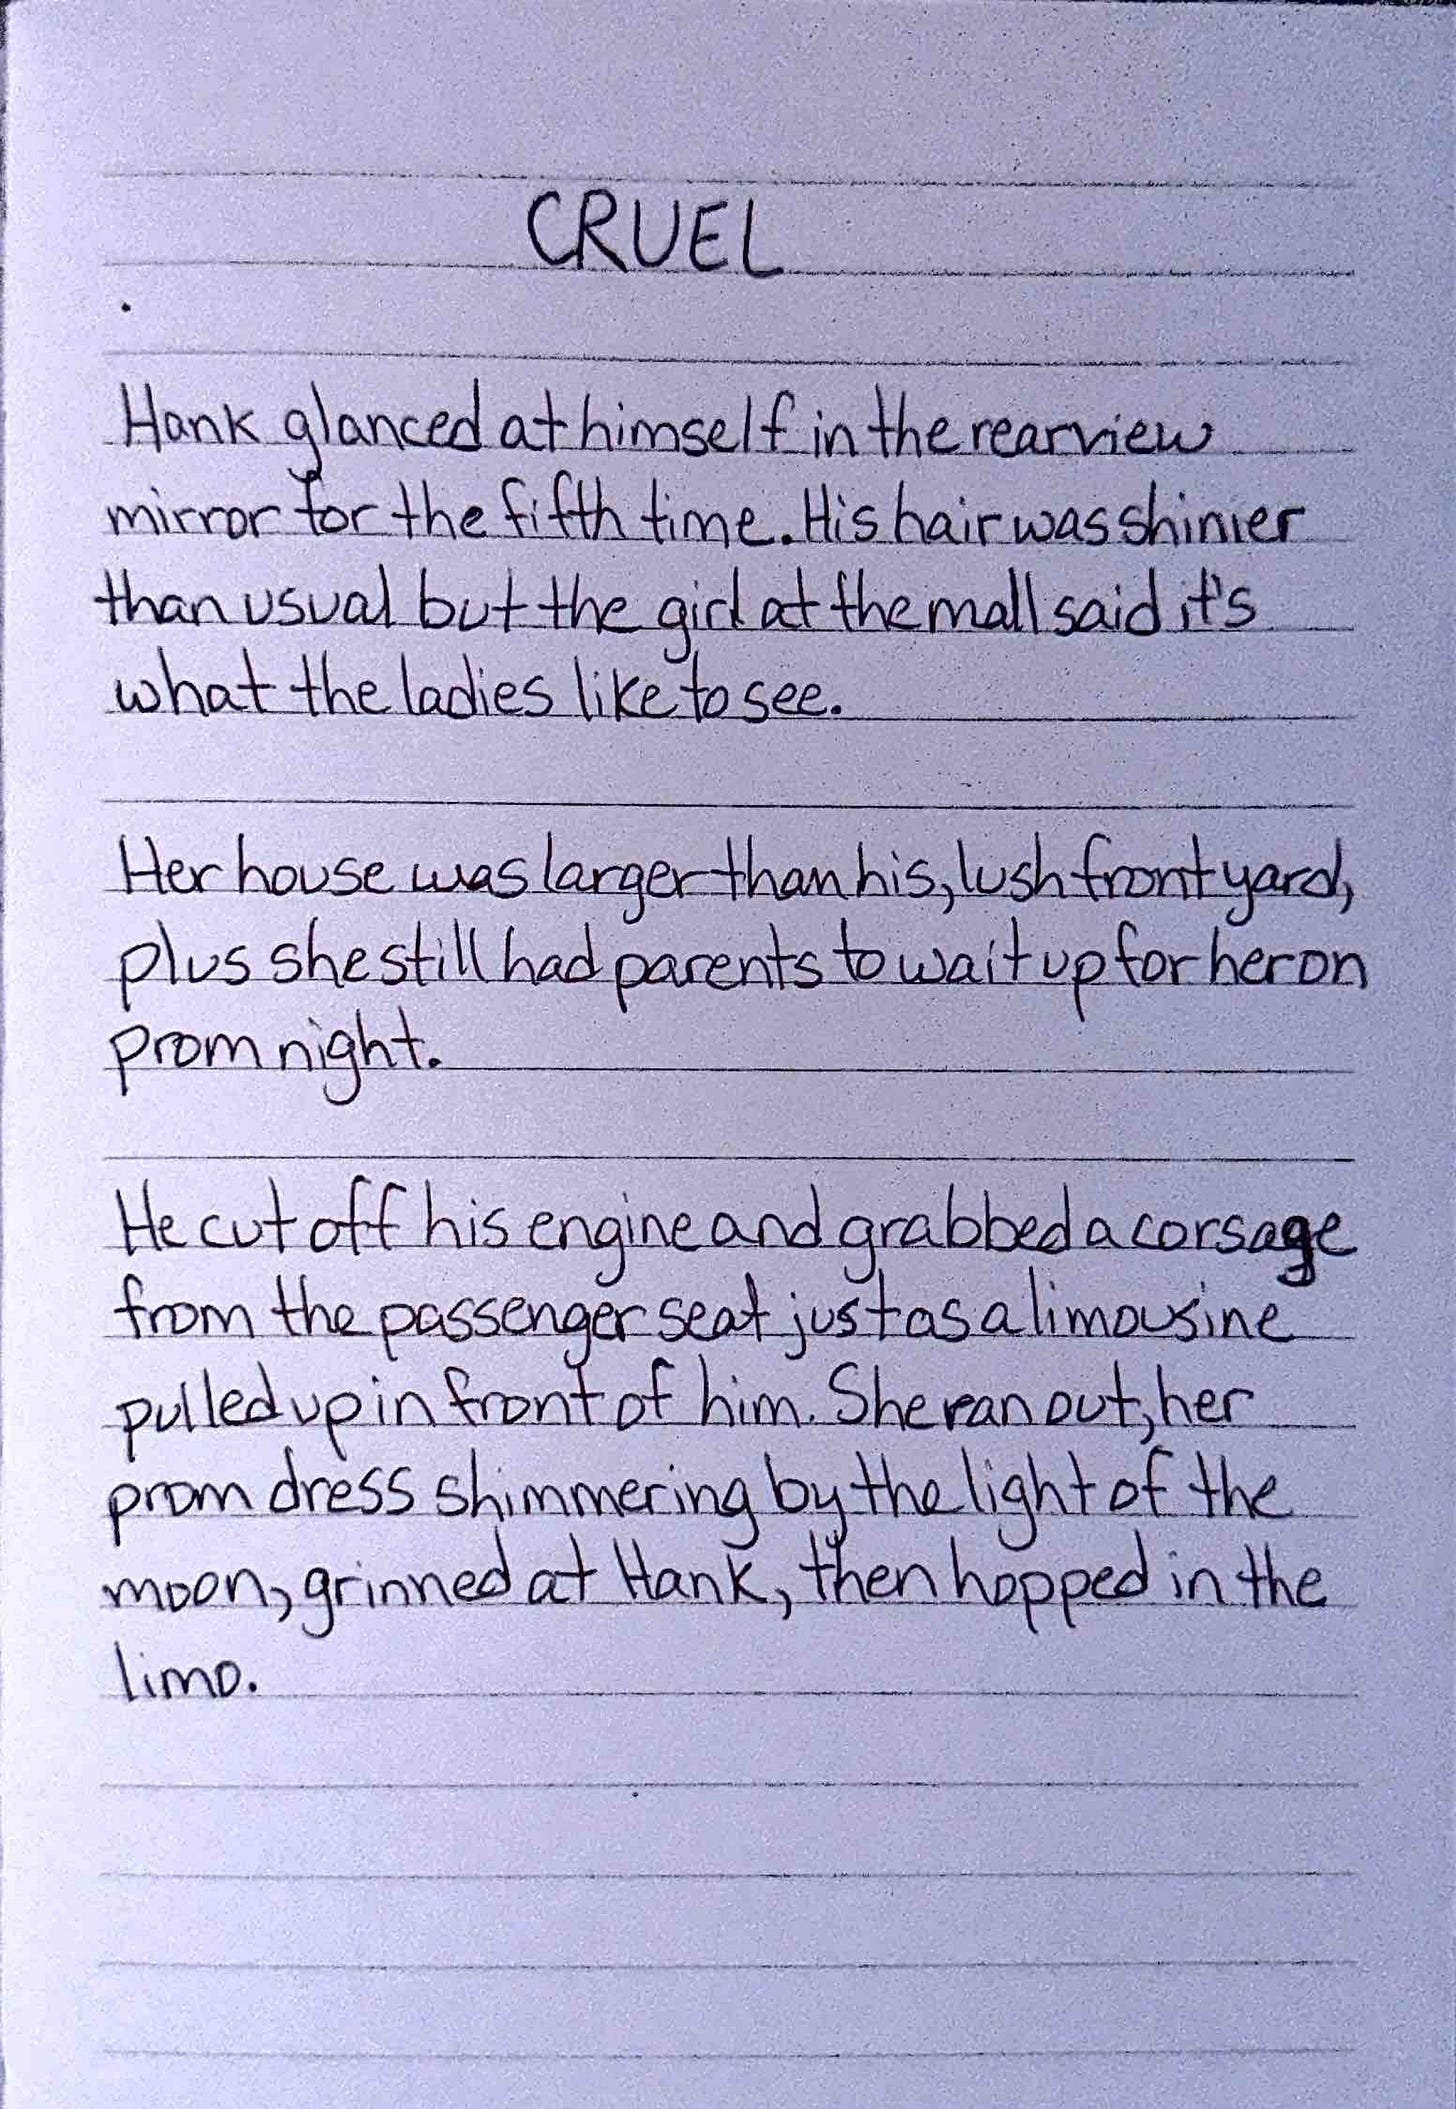 CRUEL
Hank glanced at himself in the rearview
mirror for the fifth time. His hair was shinier
than usual but the girl at the mall said it's
what the ladies like to see.
Her house was larger than his, lush front yard,
plus she still had parents to wait up for her on
prom night.
He cut off his engine and grabbed a corsage
from the passenger seat just as a limousine
pulled up in front of him. She ran out, her
prom dress shimmering by the light of the
moon, grinned at Hank, then hopped in the
limo.